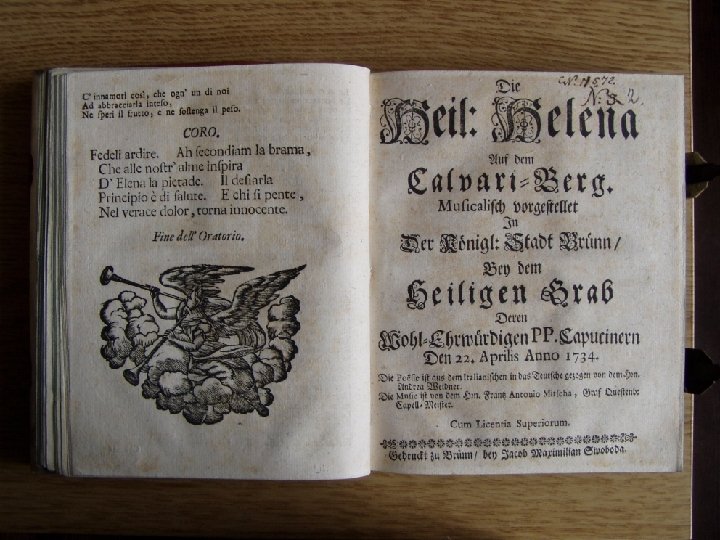 C' innamori così, che ogn' un di noi
Ad abbracciarla inteso,
Ne speri il frutto, e ne sostenga il peso.
CORO.
Fedeli ardire. Ah secondiam la brama,
Che alle nostr' alme inspira
D' Elena la pietade. Il desiarla
Principio è di salute. E chi si pente,
Nel verace dolor, torna innocente.
Fine dell' Oratorio.
N: 2.
Die
Heil: Helena
Auf dem
Calvari-Berg.
Musicalisch vorgestellet
In
Der Königl: Stadt Brünn/
Bey dem
Heiligen Grab
Deren
Wohl-Ehrwürdigen PP. Capucinern
Den 22. Aprilis Anno 1734.
Die Poësie ist aus dem Italiänischen in das Teutsche gezogen von dem Hrn.
Andrea Weidner.
Die Music ist von dem Hrn. Frantz Antonio Mitscha, Graf Questenb:
Capell-Meister.
Cum Licentia Superiorum.
Gedruckt zu Brünn/ bey Jacob Maximilian Swoboda.